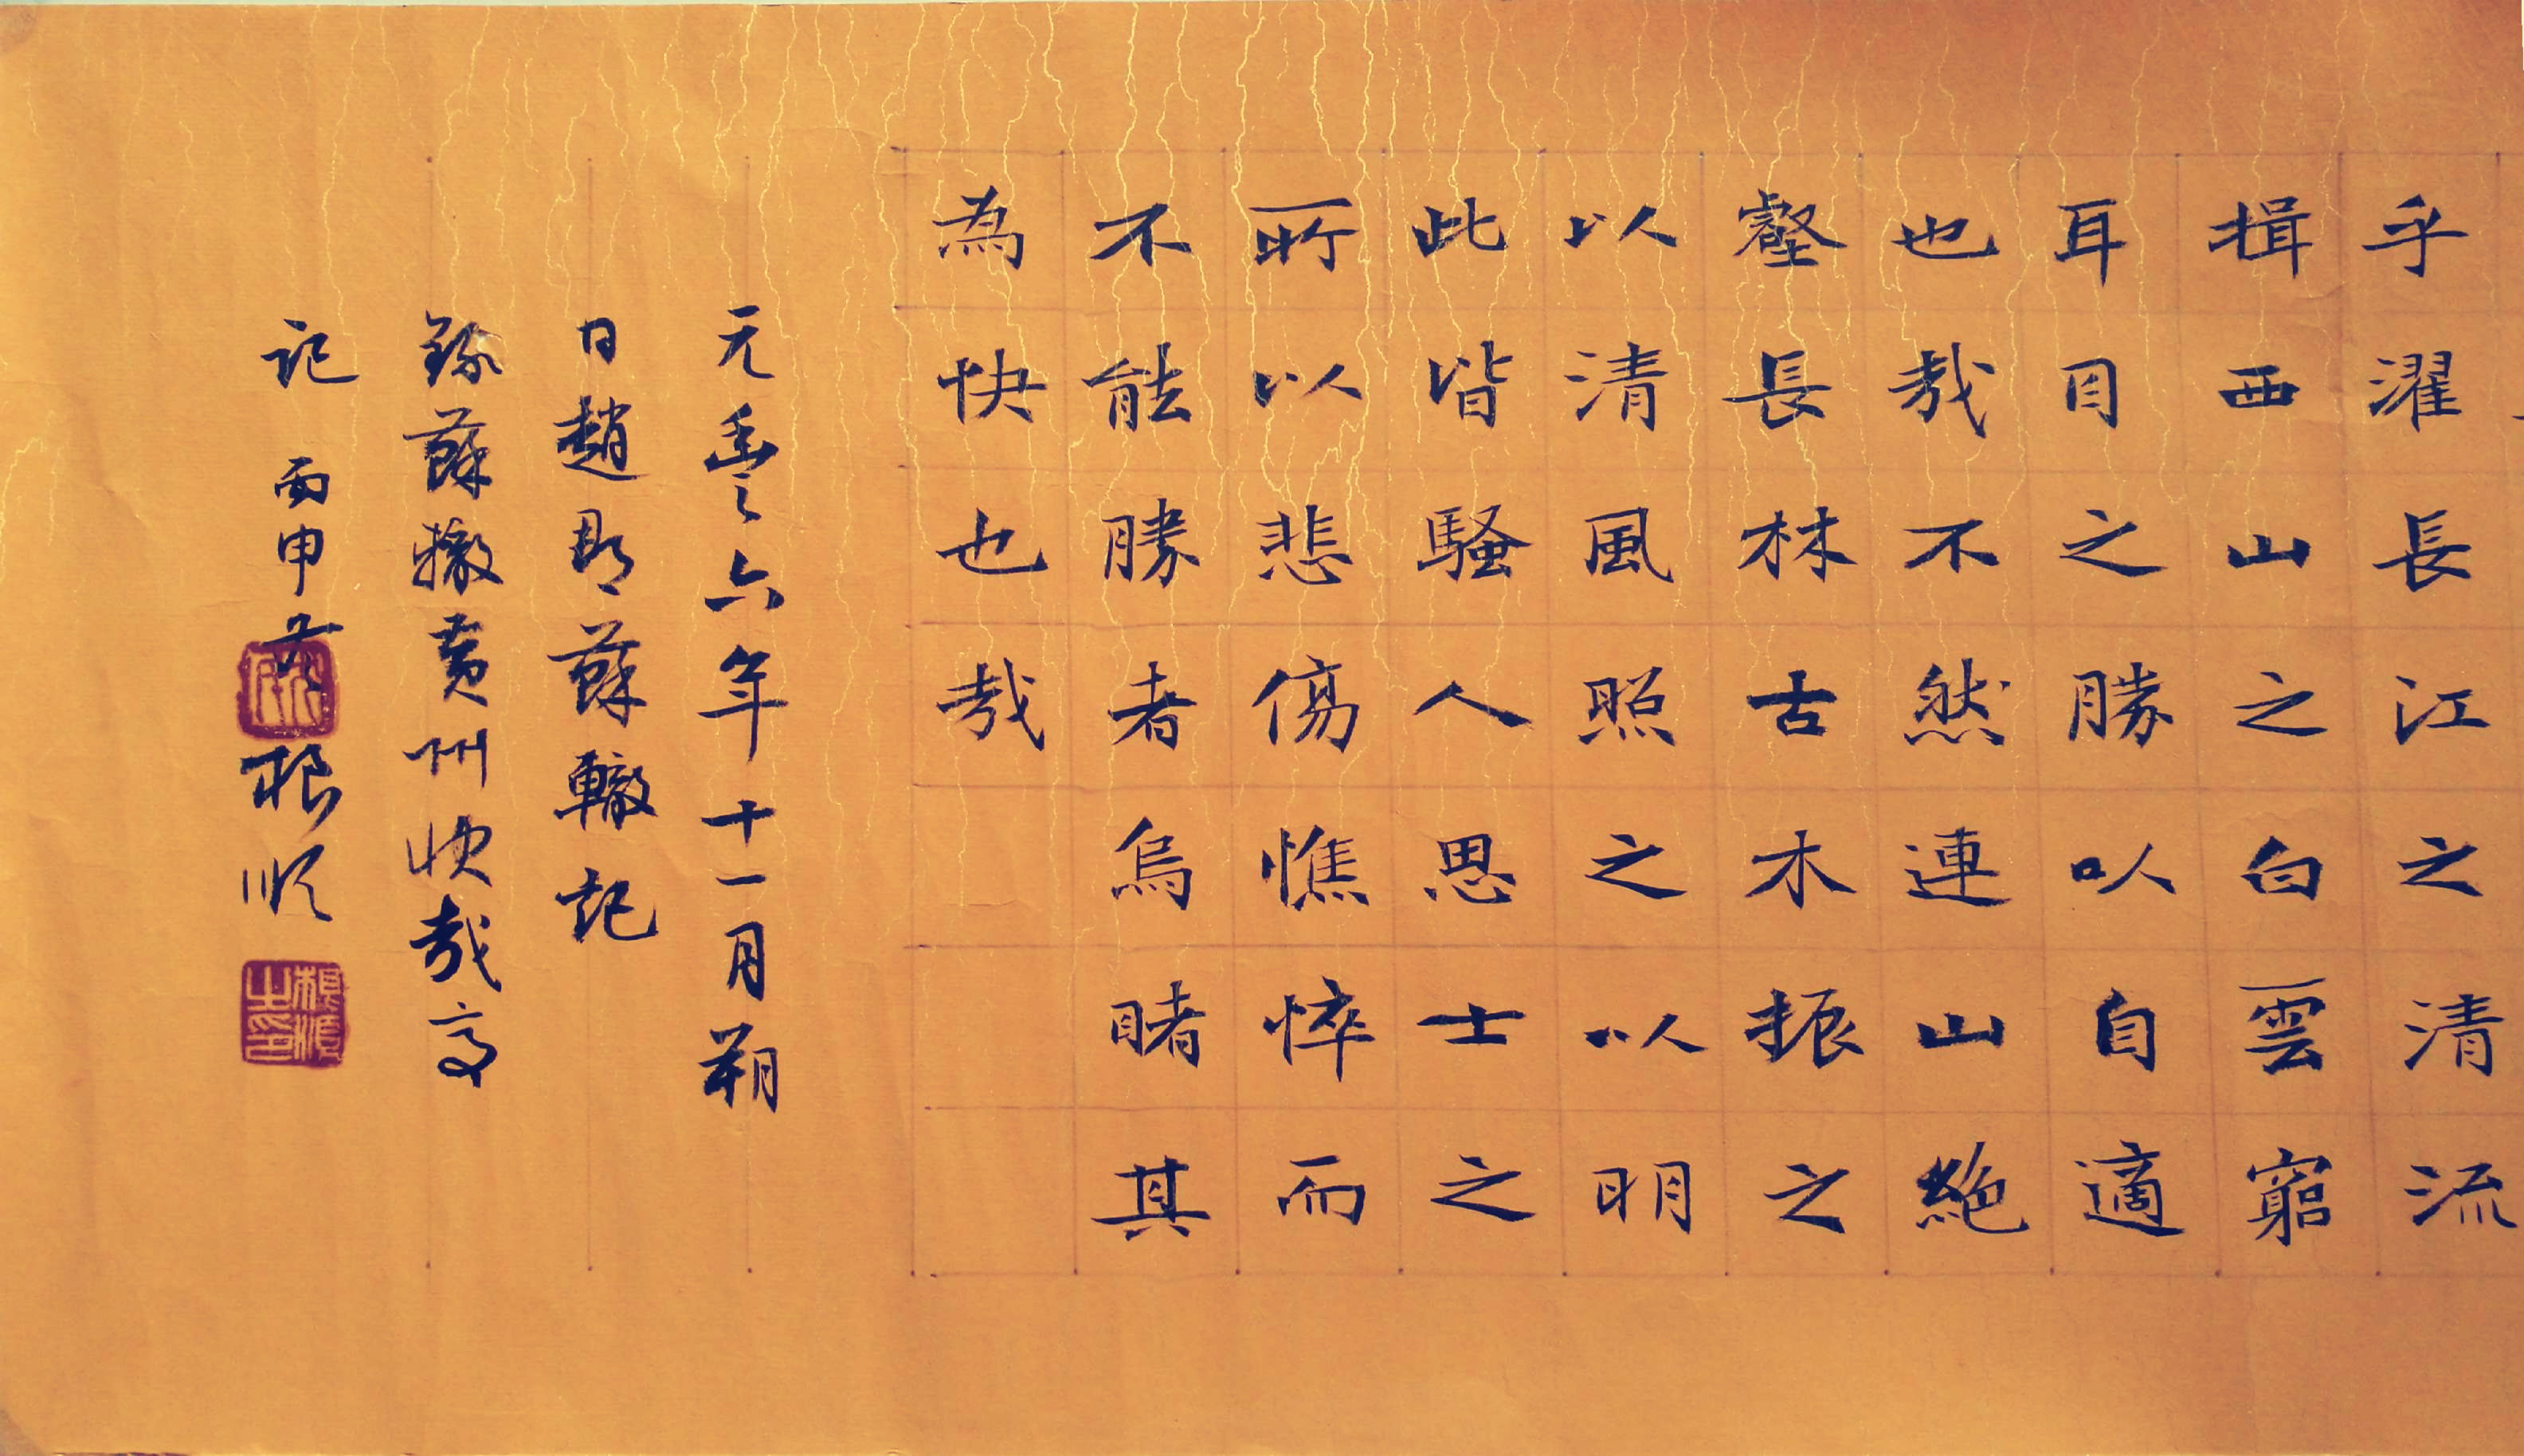 乎濯長江之清流
揖西山之白雲窮
耳目之勝以自適
也哉不然連山絕
壑長林古木振之
以清風照之以明
此皆騷人思士之
所以悲傷憔悴而
不能勝者烏睹其
為快也哉
元豐六年十一月朔
日趙郡蘇轍記
錄蘇轍黃州快哉亭
記 丙申 根順